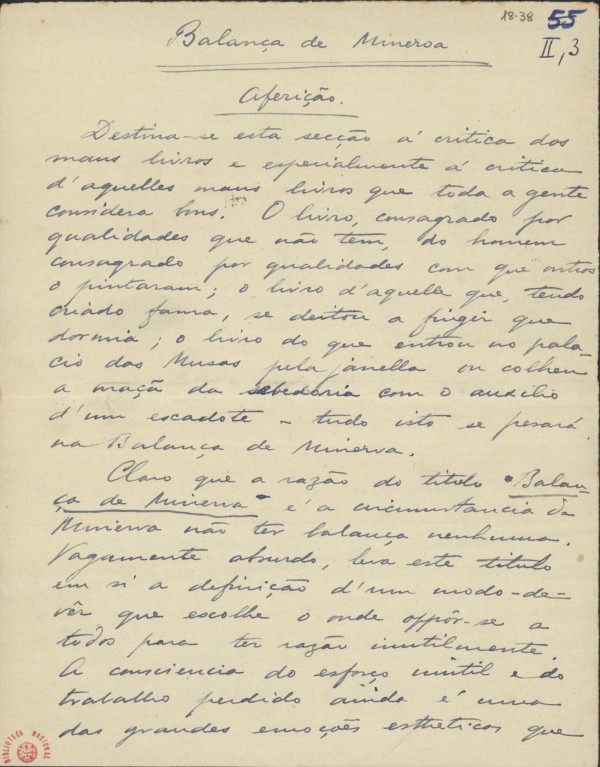 18-38 55
II, 3
Balança de Minerva
Aferição.
Destina-se esta secção á critica dos
maus livros e especialmente á critica
d'aquelles maus livros que toda a gente
considera bons. O livro, consagrado por
qualidades que não tem, do homem
consagrado por qualidades com que outros
o pintaram; o livro d'aquelle que, tendo
criado fama, se deitou a fingir que
dormia; o livro do que entrou no palá-
cio das Musas pela janella ou colheu
a maçã da sabedoria com o auxilio
d'um escadote — tudo isto se pesará
na Balança de Minerva.
Claro que a razão do titulo "Balan-
ça de Minerva" é a circumstancia de
Minerva não ter balança nenhuma.
Vagamente absurdo, leva este titulo
em si a definição d'um modo-de-
vêr que escolhe o onde oppôr-se a
todos para ter razão inutilmente.
A consciencia do esforço inutil e do
trabalho perdido ainda é uma
das grandes emoções estheticas que
BIBLIOTECA NACIONAL